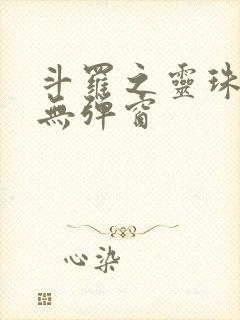 斗羅之靈珠
無彈窗
心染